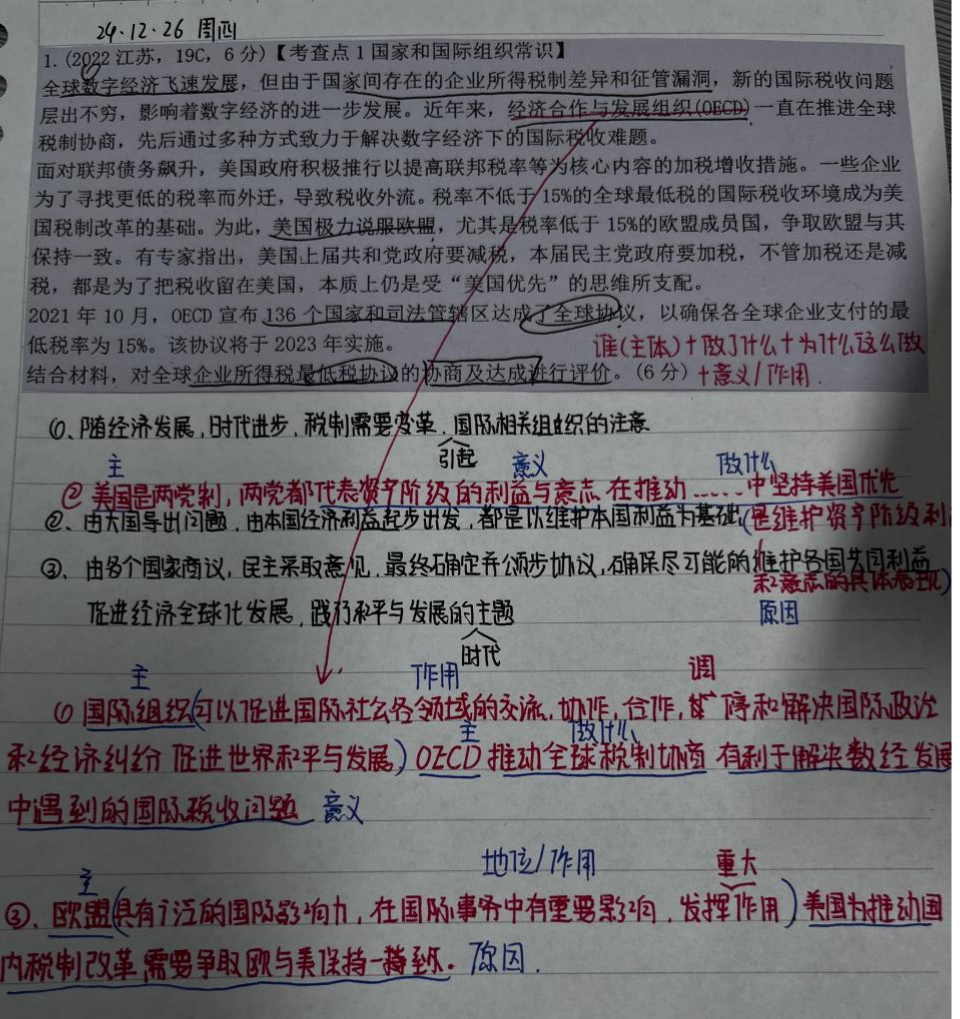 24·12·26 周四
1.(2022江苏，19C，6分)【考查点1国家和国际组织常识】
全球数字经济飞速发展，但由于国家间存在的企业所得税制差异和征管漏洞，新的国际税收问题
层出不穷，影响着数字经济的进一步发展。近年来，经济合作与发展组织(OECD)一直在推进全球
税制协商，先后通过多种方式致力于解决数字经济下的国际税收难题。
面对联邦债务飙升，美国政府积极推行以提高联邦税率等为核心内容的加税增收措施。一些企业
为了寻找更低的税率而外迁，导致税收外流。税率不低于15%的全球最低税的国际税收环境成为美
国税制改革的基础。为此，美国极力说服欧盟，尤其是税率低于15%的欧盟成员国，争取欧盟与其
保持一致。有专家指出，美国上届共和党政府要减税，本届民主党政府要加税，不管加税还是减
税，都是为了把税收留在美国，本质上仍是受“美国优先”的思维所支配。
2021年10月，OECD宣布136个国家和司法管辖区达成了全球协议，以确保各全球企业支付的最
低税率为15%。该协议将于2023年实施。
谁(主体)+做了什么+为什么这么做
结合材料，对全球企业所得税最低税协议的协商及达成进行评价。(6分)
+意义/作用.
①、随经济发展,时代进步,税制需要变革,国际相关组织的注意
引起
主 意义 做什么
②美国是两党制,两党都代表资产阶级的利益与意志 在推动……中坚持美国优先
②、由大国导出问题,由本国经济利益起步出发,都是以维护本国利益为基础
(是维护资产阶级利
③、由多个国家商议,民主采取意见,最终确定并颁步协议,确保尽可能的维护各国共同利益
和意志的具体表现)
促进经济全球化发展,践行和平与发展的主题
原因
时代
主 作用 调
①国际组织(可以促进国际社会各领域的交流,协作,合作,停和解决国际政治
主 做什么
和经济纠纷 促进世界和平与发展)OECD推动全球税制协商 有利于解决数经发展
中遇到的国际税收问题 意义
主 地位/作用 重大
③、欧盟(具有广泛的国际影响力,在国际事务中有重要影响,发挥作用)美国为推动国
内税制改革需要争取欧与美保持一致. 原因.